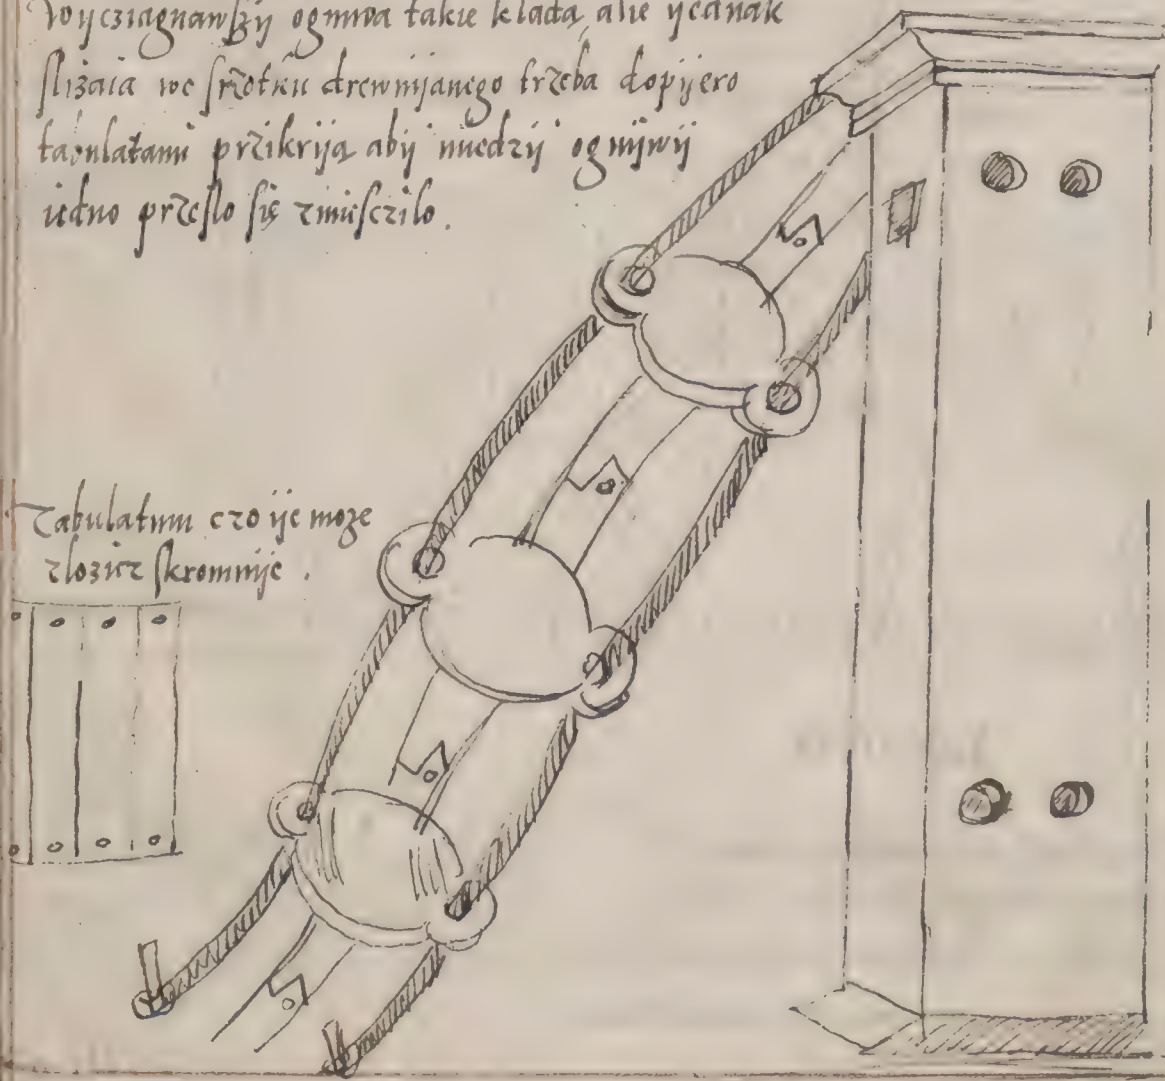 Wÿcziagnawßÿ ogniwa takie kladą, alie ÿednak
slizaia we srzotku drewnÿanego trzeba dopÿero
tabulatami przikrÿą abÿ miedzÿ ognÿwÿ
iedno przeslo się zmiesczilo.
Tabulatum czo ÿe może
zlozicz skromnÿe.